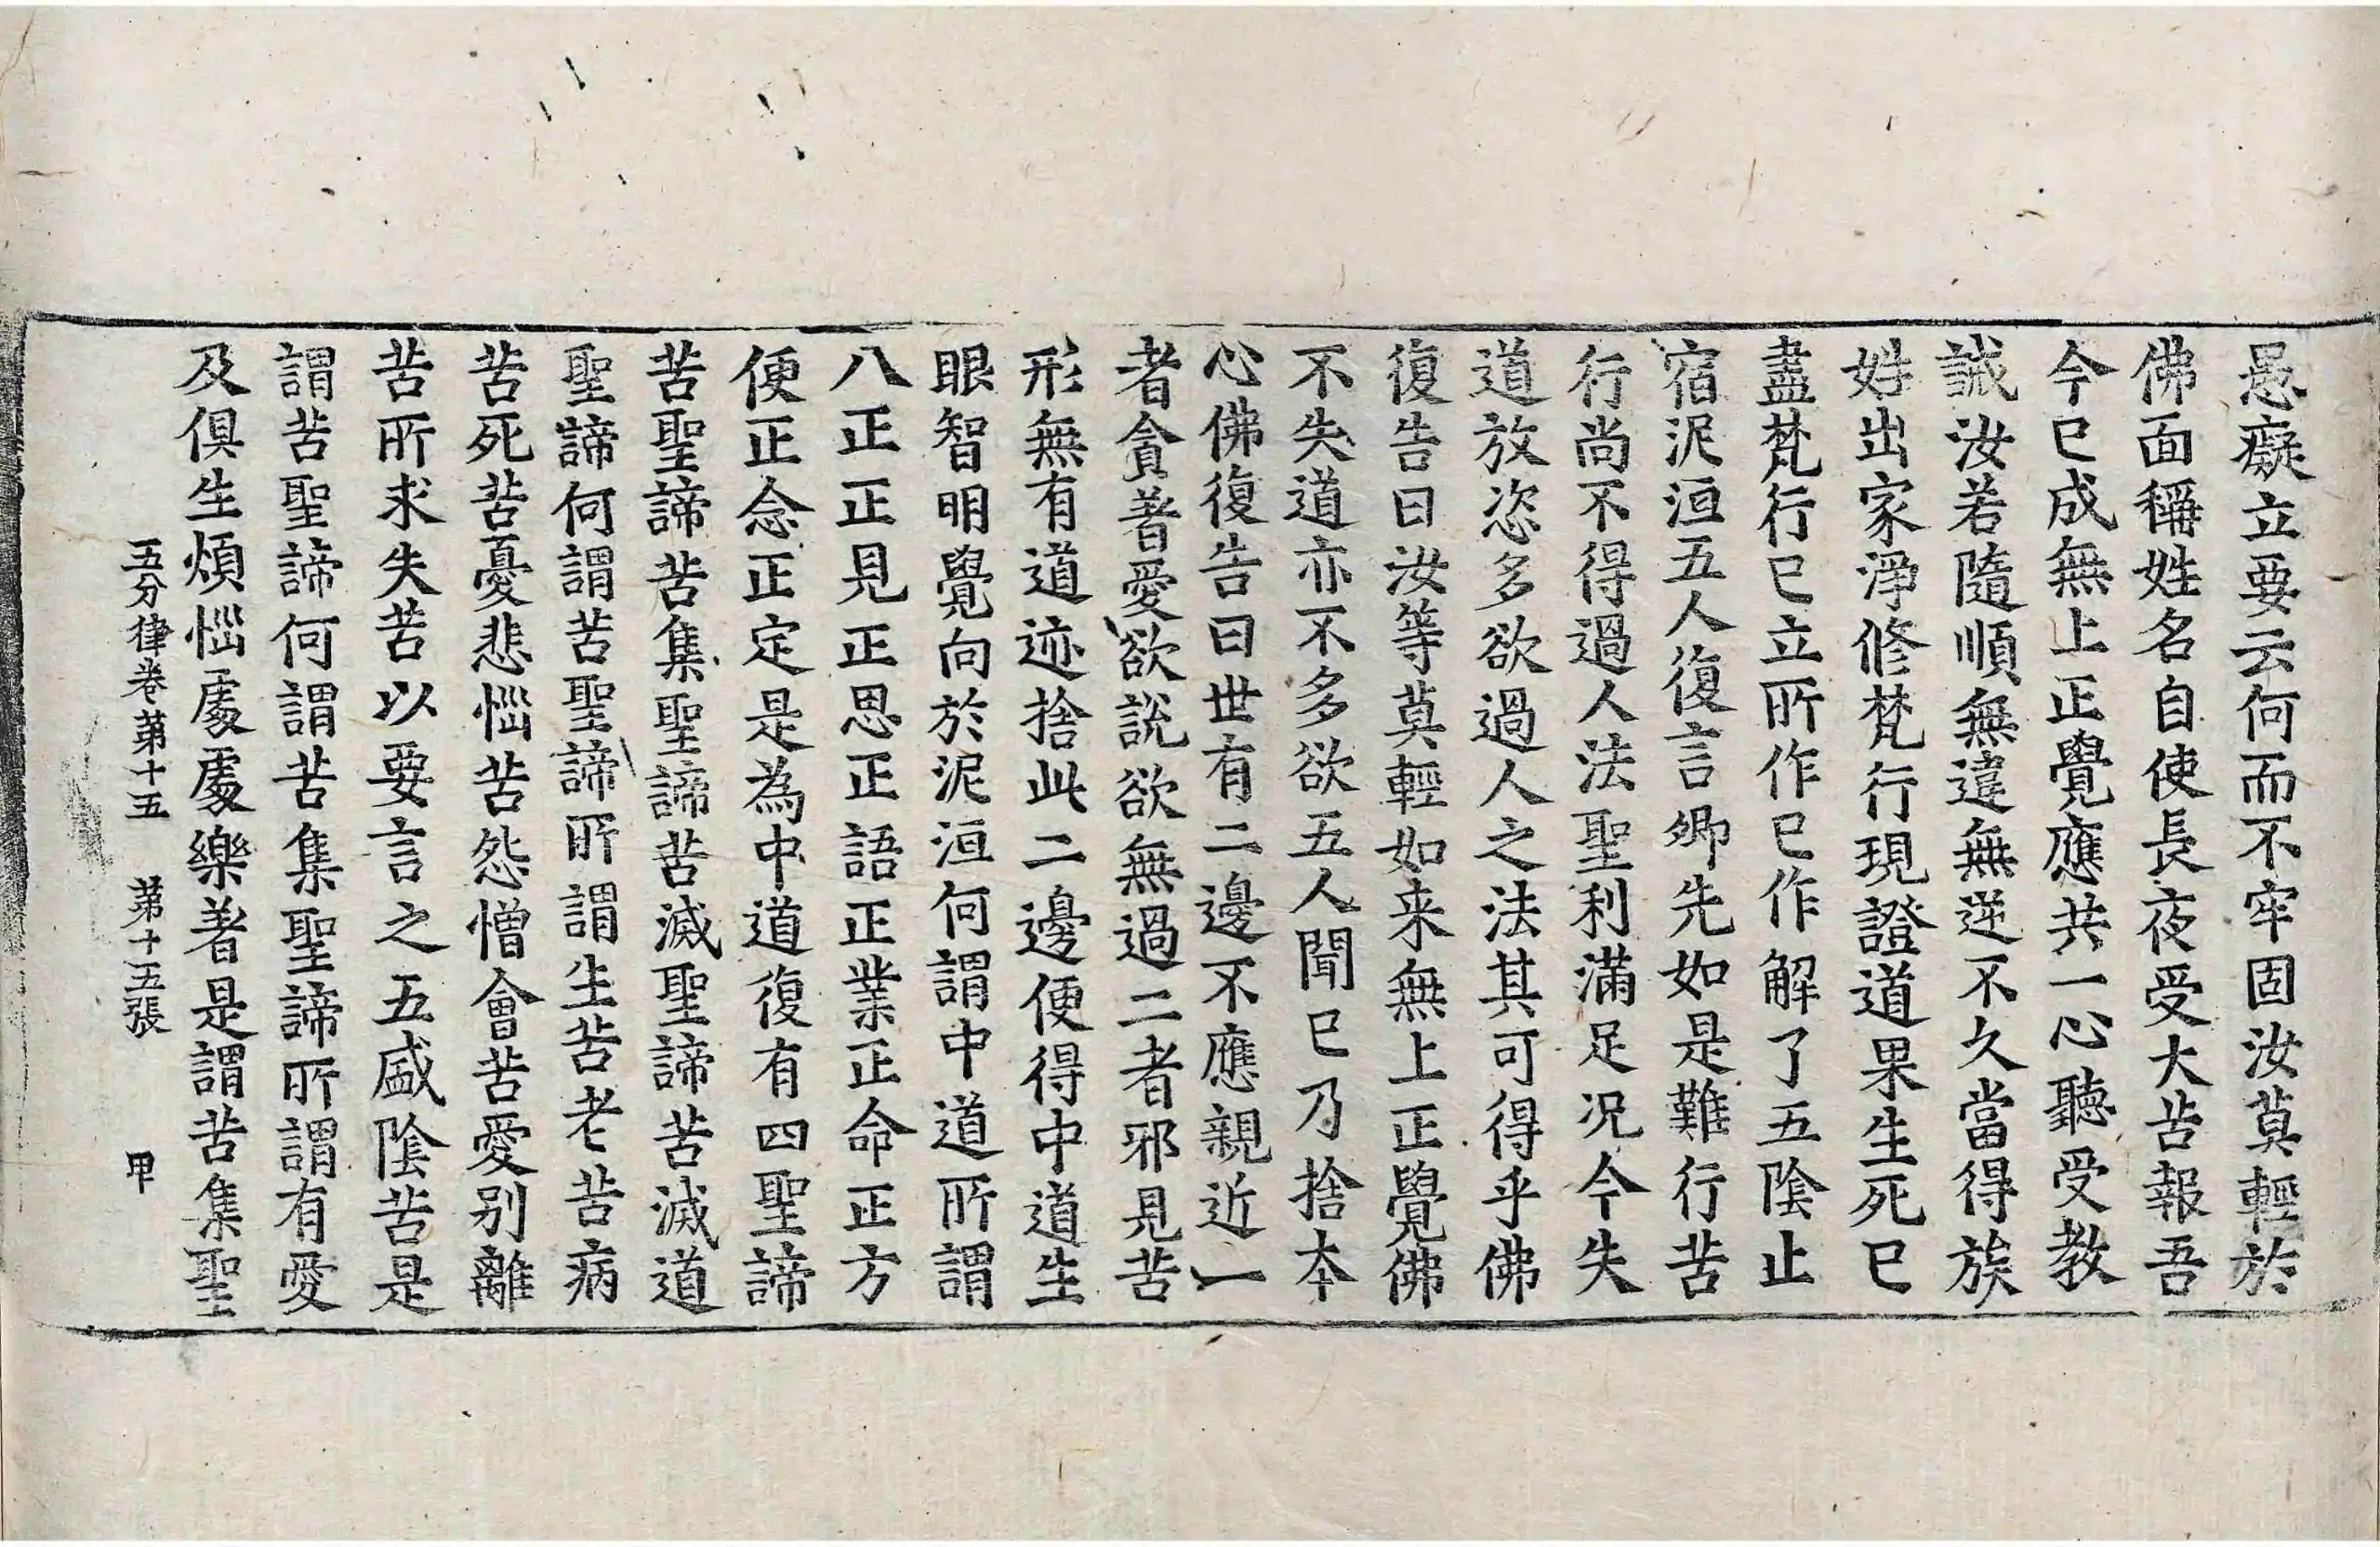 愚癡立要云何而不牢固汝莫輕於
佛面稱姓名自使長夜受大苦報吾
今已成無上正覺應共一心聽受教
誡汝若隨順無違無逆不久當得族
姓出家淨修梵行現證道果生死已
盡梵行已立所作已作解了五陰止
宿泥洹五人復言卿先如是難行苦
行尚不得過人法聖利滿足況今失
道放恣多欲過人之法其可得乎佛
復告曰汝等莫輕如来無上正覺佛
不失道亦不多欲五人聞已乃捨本
心佛復告曰世有二邊不應親近一
者貪著愛欲說欲無過二者邪見苦
形無有道迹捨此二邊便得中道生
眼智明覺向於泥洹何謂中道所謂
八正正見正思正語正業正命正方
便正念正定是為中道復有四聖諦
苦聖諦苦集聖諦苦滅聖諦苦滅道
聖諦何謂苦聖諦所謂生苦老苦病
苦死苦憂悲惱苦怨憎會苦愛別離
苦所求失苦以要言之五盛陰苦是
謂苦聖諦何謂苦集聖諦所謂有愛
及俱生煩惱處處樂著是謂苦集聖
五分律卷第十五 第十五張 甲